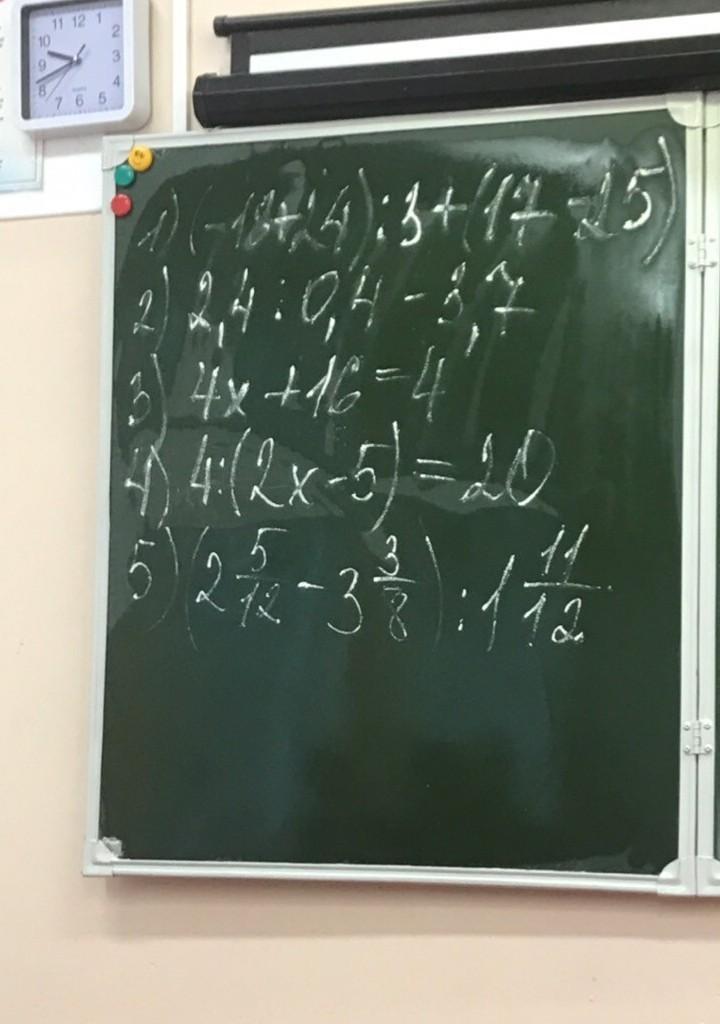 11 12 1
10 2
9 3
8 4
7 6 5
1) (-18+24):3+(17-25)
2) 2,4:0,4-3,7
3) 4x+16=4
4) 4:(2x-5)=20
5) (2 5/12 - 3 3/8) : 1 11/12